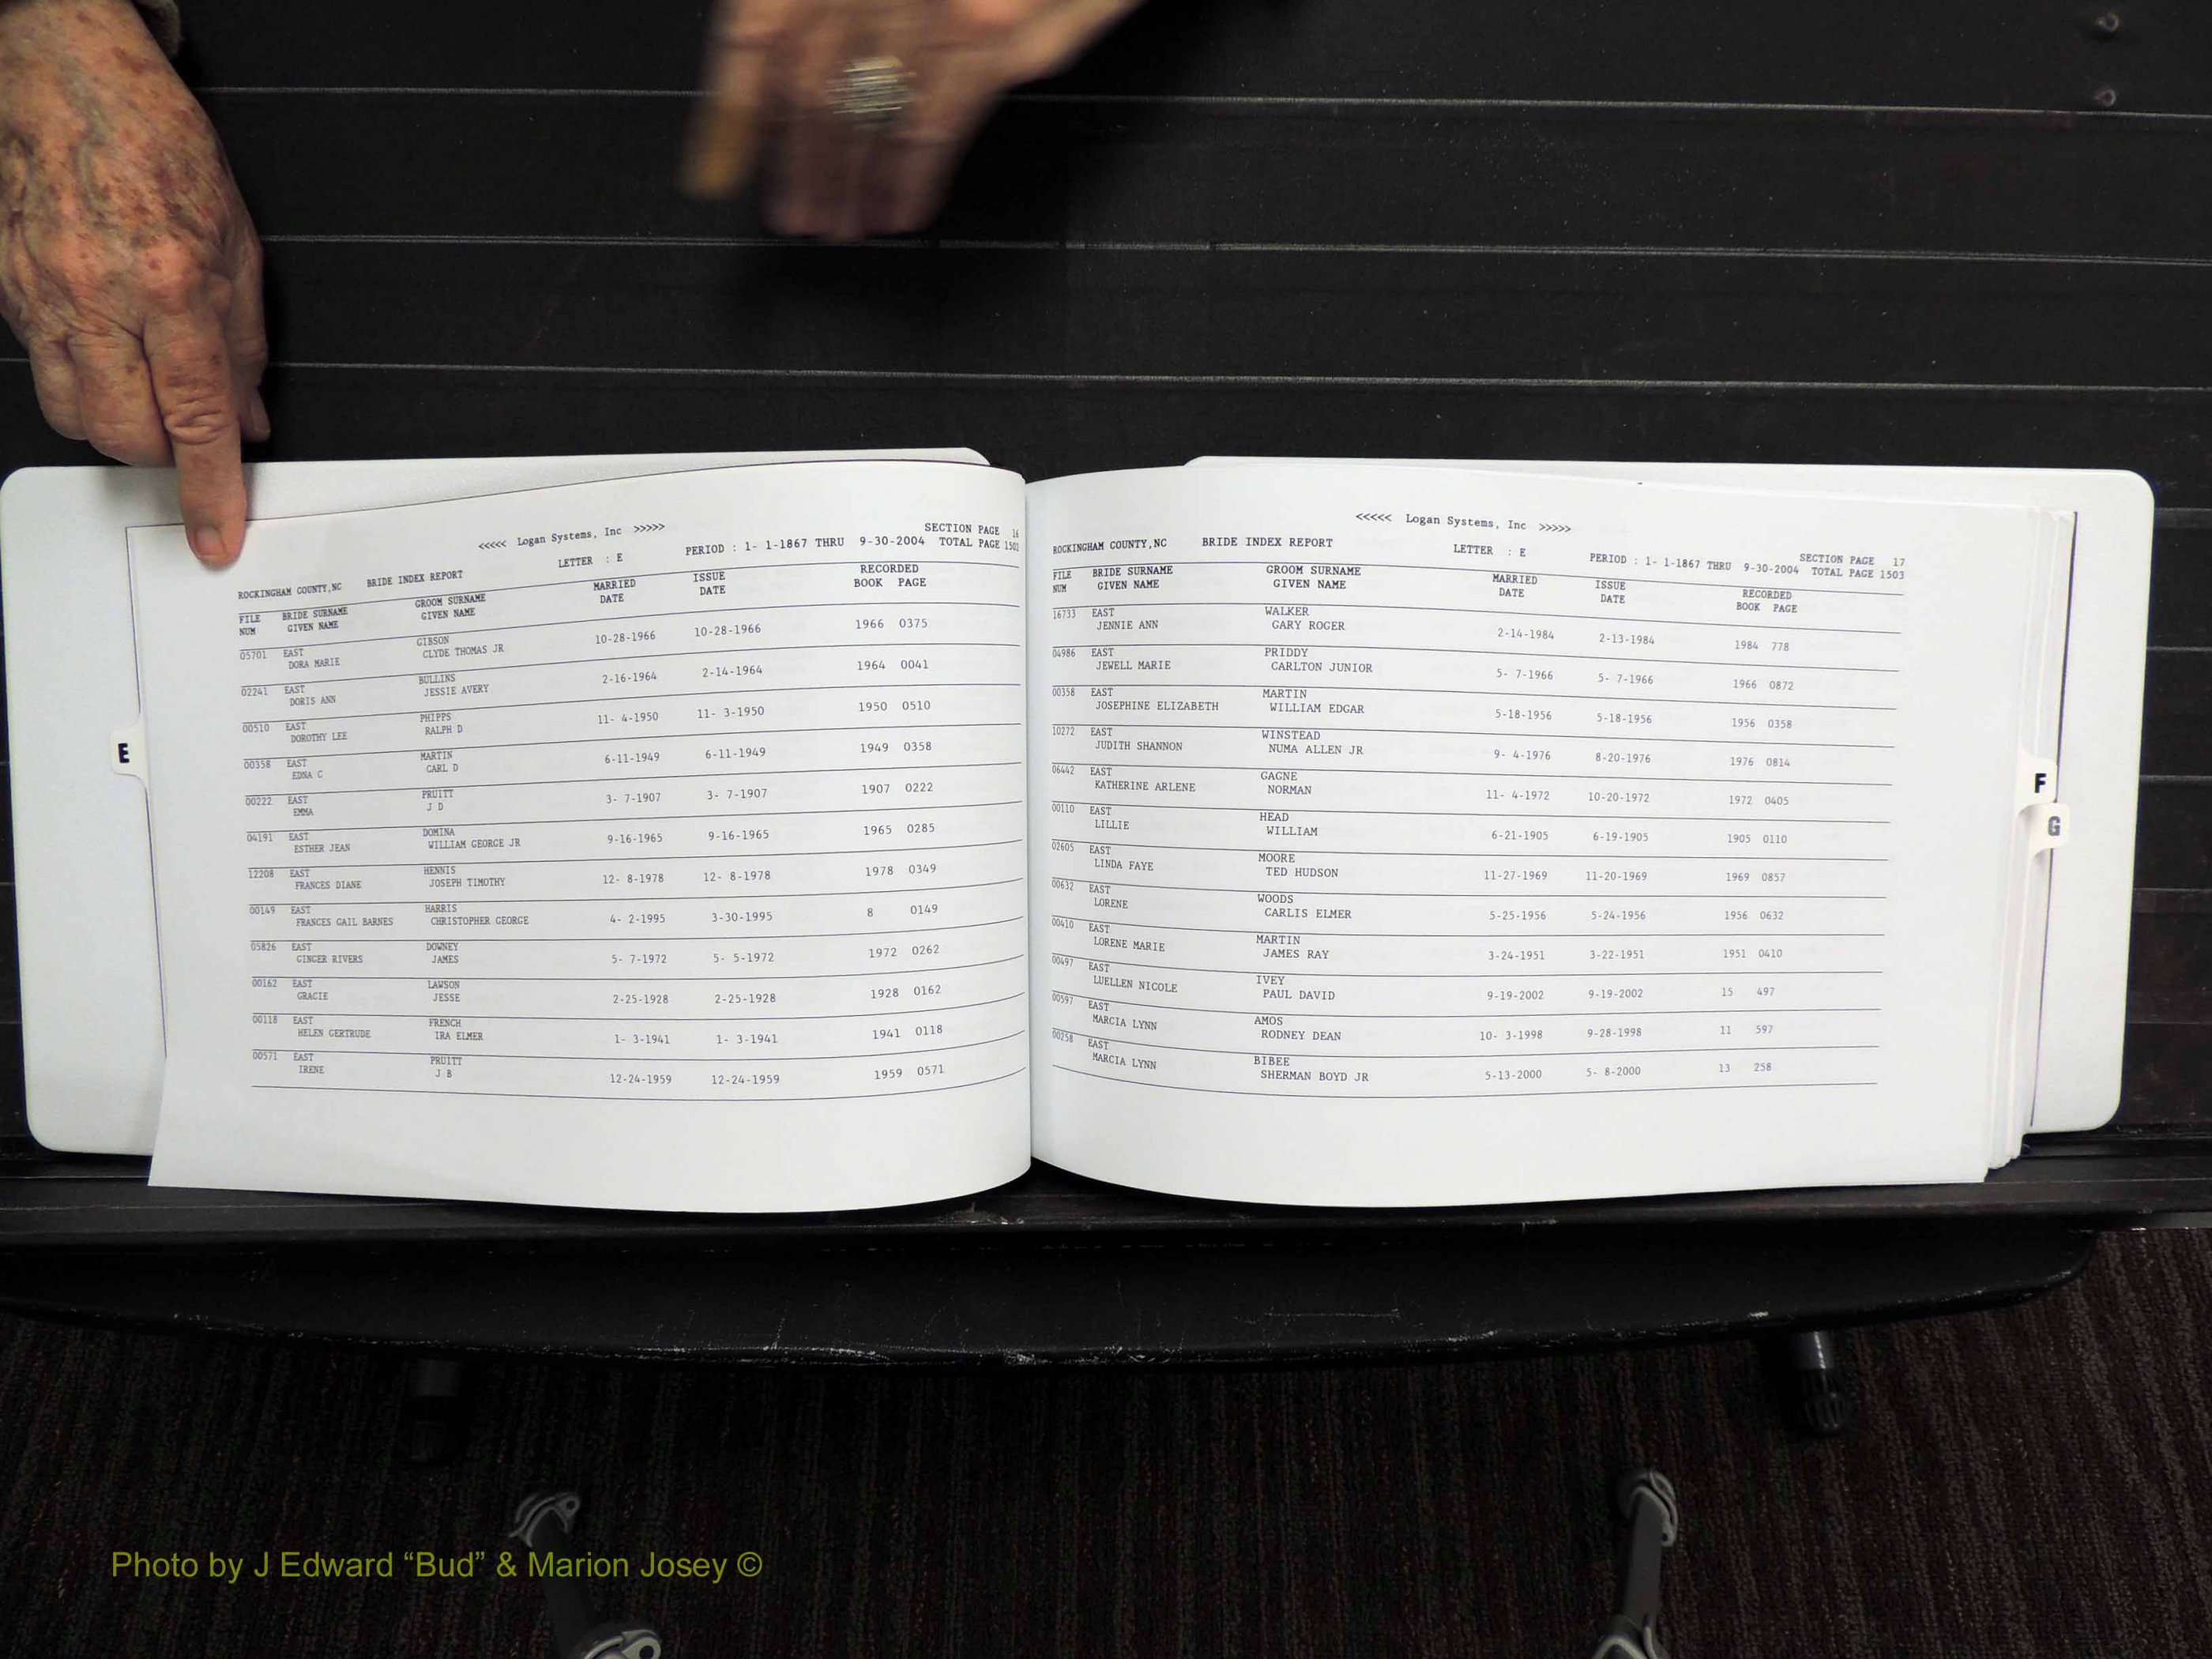 <<<<< Logan Systems, Inc >>>>>
SECTION PAGE 16
ROCKINGHAM COUNTY,NC BRIDE INDEX REPORT LETTER : E PERIOD : 1- 1-1867 THRU 9-30-2004 TOTAL PAGE 1502
FILE BRIDE SURNAME GROOM SURNAME MARRIED ISSUE RECORDED
NUM GIVEN NAME GIVEN NAME DATE DATE BOOK PAGE
05701 EAST GIBSON 10-28-1966 10-28-1966 1966 0375
DORA MARIE CLYDE THOMAS JR
02241 EAST BULLINS 2-16-1964 2-14-1964 1964 0041
DORIS ANN JESSIE AVERY
00510 EAST PHIPPS 11- 4-1950 11- 3-1950 1950 0510
DOROTHY LEE RALPH D
00358 EAST MARTIN 6-11-1949 6-11-1949 1949 0358
EDNA C CARL D
00222 EAST PRUITT 3- 7-1907 3- 7-1907 1907 0222
EMMA J D
04191 EAST DOMINA 9-16-1965 9-16-1965 1965 0285
ESTHER JEAN WILLIAM GEORGE JR
12208 EAST HENNIS 12- 8-1978 12- 8-1978 1978 0349
FRANCES DIANE JOSEPH TIMOTHY
00149 EAST HARRIS 4- 2-1995 3-30-1995 8 0149
FRANCES GAIL BARNES CHRISTOPHER GEORGE
05826 EAST DOWNEY 5- 7-1972 5- 5-1972 1972 0262
GINGER RIVERS JAMES
00162 EAST LAWSON 2-25-1928 2-25-1928 1928 0162
GRACIE JESSE
00118 EAST FRENCH 1- 3-1941 1- 3-1941 1941 0118
HELEN GERTRUDE IRA ELMER
00571 EAST PRUITT 12-24-1959 12-24-1959 1959 0571
IRENE J B
E
<<<<< Logan Systems, Inc >>>>>
SECTION PAGE 17
ROCKINGHAM COUNTY,NC BRIDE INDEX REPORT LETTER : E PERIOD : 1- 1-1867 THRU 9-30-2004 TOTAL PAGE 1503
FILE BRIDE SURNAME GROOM SURNAME MARRIED ISSUE RECORDED
NUM GIVEN NAME GIVEN NAME DATE DATE BOOK PAGE
16733 EAST WALKER 2-14-1984 2-13-1984 1984 778
JENNIE ANN GARY ROGER
04986 EAST PRIDDY 5- 7-1966 5- 7-1966 1966 0872
JEWELL MARIE CARLTON JUNIOR
00358 EAST MARTIN 5-18-1956 5-18-1956 1956 0358
JOSEPHINE ELIZABETH WILLIAM EDGAR
10272 EAST WINSTEAD 9- 4-1976 8-20-1976 1976 0814
JUDITH SHANNON NUMA ALLEN JR
06442 EAST GAGNE 11- 4-1972 10-20-1972 1972 0405
KATHERINE ARLENE NORMAN
00110 EAST HEAD 6-21-1905 6-19-1905 1905 0110
LILLIE WILLIAM
02605 EAST MOORE 11-27-1969 11-20-1969 1969 0857
LINDA FAYE TED HUDSON
00632 EAST WOODS 5-25-1956 5-24-1956 1956 0632
LORENE CARLIS ELMER
00410 EAST MARTIN 3-24-1951 3-22-1951 1951 0410
LORENE MARIE JAMES RAY
00497 EAST IVEY 9-19-2002 9-19-2002 15 497
LUELLEN NICOLE PAUL DAVID
00597 EAST AMOS 10- 3-1998 9-28-1998 11 597
MARCIA LYNN RODNEY DEAN
00258 EAST BIBEE 5-13-2000 5- 8-2000 13 258
MARCIA LYNN SHERMAN BOYD JR
F
G
Photo by J Edward “Bud” & Marion Josey ©